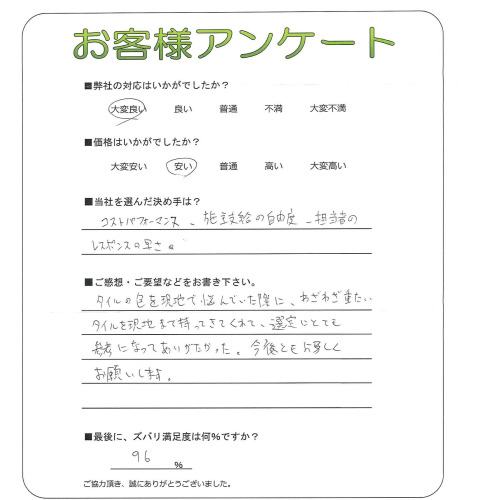 お客様アンケート
■弊社の対応はいかがでしたか？
大変良い 良い 普通 不満 大変不満
■価格はいかがでしたか？
大変安い 安い 普通 高い 大変高い
■当社を選んだ決め手は？
コストパフォーマンス、施主支給の自由度、担当者の
レスポンスの早さ。
■ご感想・ご要望などをお書き下さい。
タイルの色を現地で悩んでいた際に、わざわざ重たい
タイルを現地まで持ってきてくれて、選定にとても
参考になってありがたかった。今後とも宜しく
お願いします。
■最後に、ズバリ満足度は何%ですか？
96 %
ご協力頂き、誠にありがとうございました。